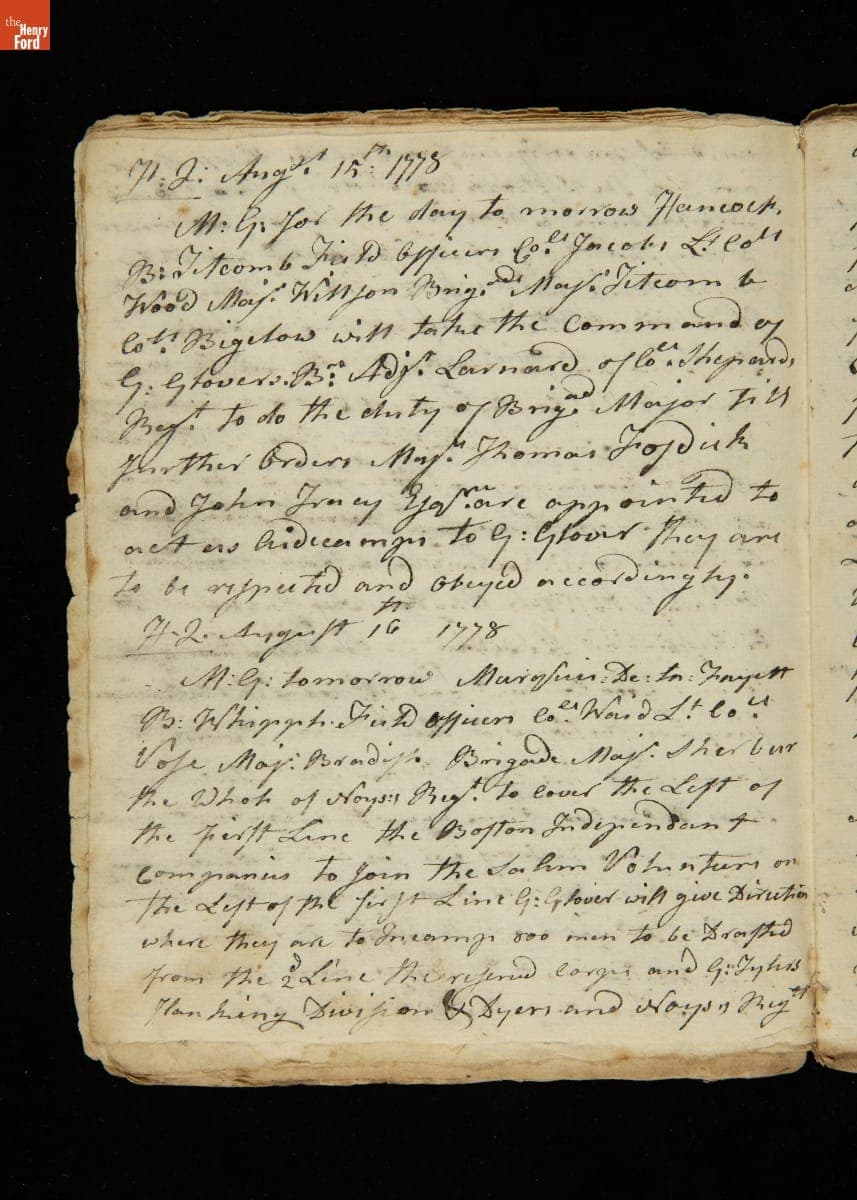 the
Henry
Ford
H: Q: Augst. 15th. 1778
M: G: for the day to morrow Hancock,
B: Titcomb Field Officers Cols. Jacobs Lt. Cols
Wood Majr. Willson Brigade Majr. Titcomb
Colo. Bigelow will take the Command of
G: Glovers: Be. Adjt. Larnard of Col. Shepards
Regt. to do the duty of Brigad Major till
further Orders Majr. Thomas Fosdick
and John Tracy Esqrs. are appointed to
act as Aidecamps to G: Glover they are
to be respected and obeyed accordingly.
H. Q. August 16th 1778
M: G: tomorrow Marquis: De: la: Fayett
B: Whipple. Field officers Cols. Waid Lt. Cols
Vose Majr. Bradish Brigade Majr. Sherbur
the Whole of Noyss Regt. to Cover the Left of
the first Line the Boston Independant
Companies to Join the Salem Volunteers on
the Left of the first Line G: Glover will give Direction
where they are to Incamp 800 men to be Drafted
from the 2d Line the reserved Corps and G: Tylers
Flanking Division & Dyers and Noyss Regtt